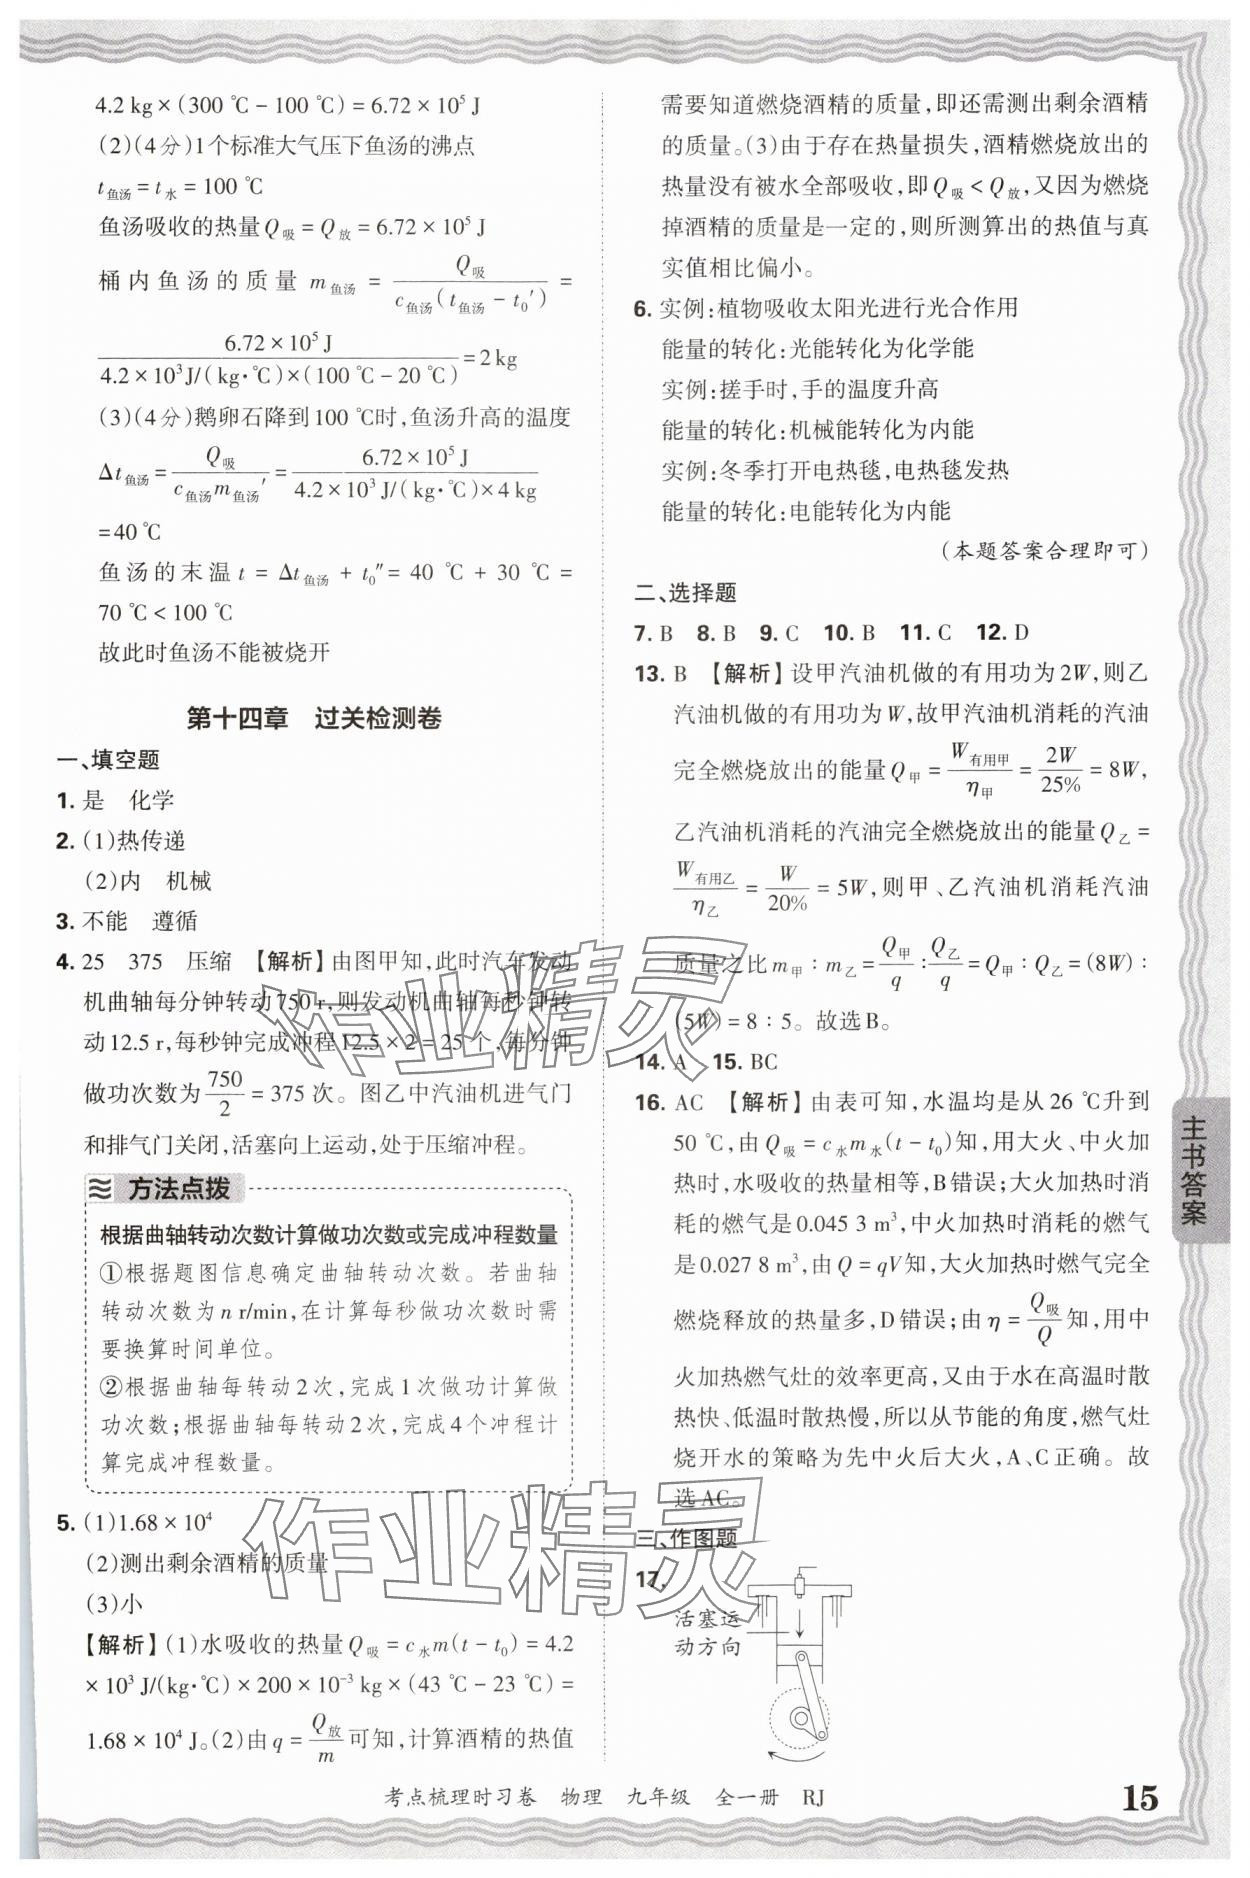 4.2 kg×(300 ℃-100 ℃)=6.72×10⁵ J
(2)(4分)1个标准大气压下鱼汤的沸点
t鱼汤=t水=100 ℃
鱼汤吸收的热量Q吸=Q放=6.72×10⁵ J
桶内鱼汤的质量 m鱼汤 = Q吸/[c鱼汤(t鱼汤-t₀′)] =
6.72×10⁵ J/[4.2×10³ J/(kg·℃)×(100 ℃-20 ℃)]=2 kg
(3)(4分)鹅卵石降到100 ℃时,鱼汤升高的温度
Δt鱼汤=Q吸/(c鱼汤m鱼汤′)=6.72×10⁵ J/[4.2×10³ J/(kg·℃)×4 kg]
=40 ℃
鱼汤的末温 t = Δt鱼汤 + t₀″= 40 ℃ + 30 ℃ =
70 ℃<100 ℃
故此时鱼汤不能被烧开
第十四章 过关检测卷
一、填空题
1. 是 化学
2. (1)热传递
(2)内 机械
3. 不能 遵循
4. 25 375 压缩 【解析】由图甲知,此时汽车发动
机曲轴每分钟转动750 r,则发动机曲轴每秒钟转
动12.5 r,每秒钟完成冲程12.5×2=25个,每分钟
做功次数为750/2=375次。图乙中汽油机进气门
和排气门关闭,活塞向上运动,处于压缩冲程。
方法点拨
根据曲轴转动次数计算做功次数或完成冲程数量
①根据题图信息确定曲轴转动次数。若曲轴
转动次数为n r/min,在计算每秒做功次数时需
要换算时间单位。
②根据曲轴每转动2次,完成1次做功计算做
功次数;根据曲轴每转动2次,完成4个冲程计
算完成冲程数量。
5. (1)1.68×10⁴
(2)测出剩余酒精的质量
(3)小
【解析】(1)水吸收的热量Q吸=c水m(t-t₀)=4.2
×10³ J/(kg·℃)×200×10⁻³ kg×(43 ℃-23 ℃)=
1.68×10⁴ J。(2)由q=Q放/m可知,计算酒精的热值
需要知道燃烧酒精的质量,即还需测出剩余酒精
的质量。(3)由于存在热量损失,酒精燃烧放出的
热量没有被水全部吸收,即Q吸<Q放,又因为燃烧
掉酒精的质量是一定的,则所测算出的热值与真
实值相比偏小。
6. 实例:植物吸收太阳光进行光合作用
能量的转化:光能转化为化学能
实例:搓手时,手的温度升高
能量的转化:机械能转化为内能
实例:冬季打开电热毯,电热毯发热
能量的转化:电能转化为内能
(本题答案合理即可)
二、选择题
7. B 8. B 9. C 10. B 11. C 12. D
13. B 【解析】设甲汽油机做的有用功为2W,则乙
汽油机做的有用功为W,故甲汽油机消耗的汽油
完全燃烧放出的能量Q甲=W有用甲/η甲=2W/25%=8W,
乙汽油机消耗的汽油完全燃烧放出的能量Q乙=
W有用乙/η乙=W/20%=5W,则甲、乙汽油机消耗汽油
质量之比m甲:m乙=Q甲/q:Q乙/q=Q甲:Q乙=(8W):
(5W)=8:5。故选B。
14. A 15. BC
16. AC 【解析】由表可知,水温均是从26 ℃升到
50 ℃,由Q吸=c水m水(t-t₀)知,用大火、中火加
热时,水吸收的热量相等,B错误;大火加热时消
耗的燃气是0.045 3 m³,中火加热时消耗的燃气
是0.027 8 m³,由Q=qV知,大火加热时燃气完全
燃烧释放的热量多,D错误;由η=Q吸/Q知,用中
火加热燃气灶的效率更高,又由于水在高温时散
热快、低温时散热慢,所以从节能的角度,燃气灶
烧开水的策略为先中火后大火,A、C正确。故
选AC。
三、作图题
17.
活塞运
动方向
主书答案
作业精灵
作业精灵
考点梳理时习卷 物理 九年级 全一册 RJ
15